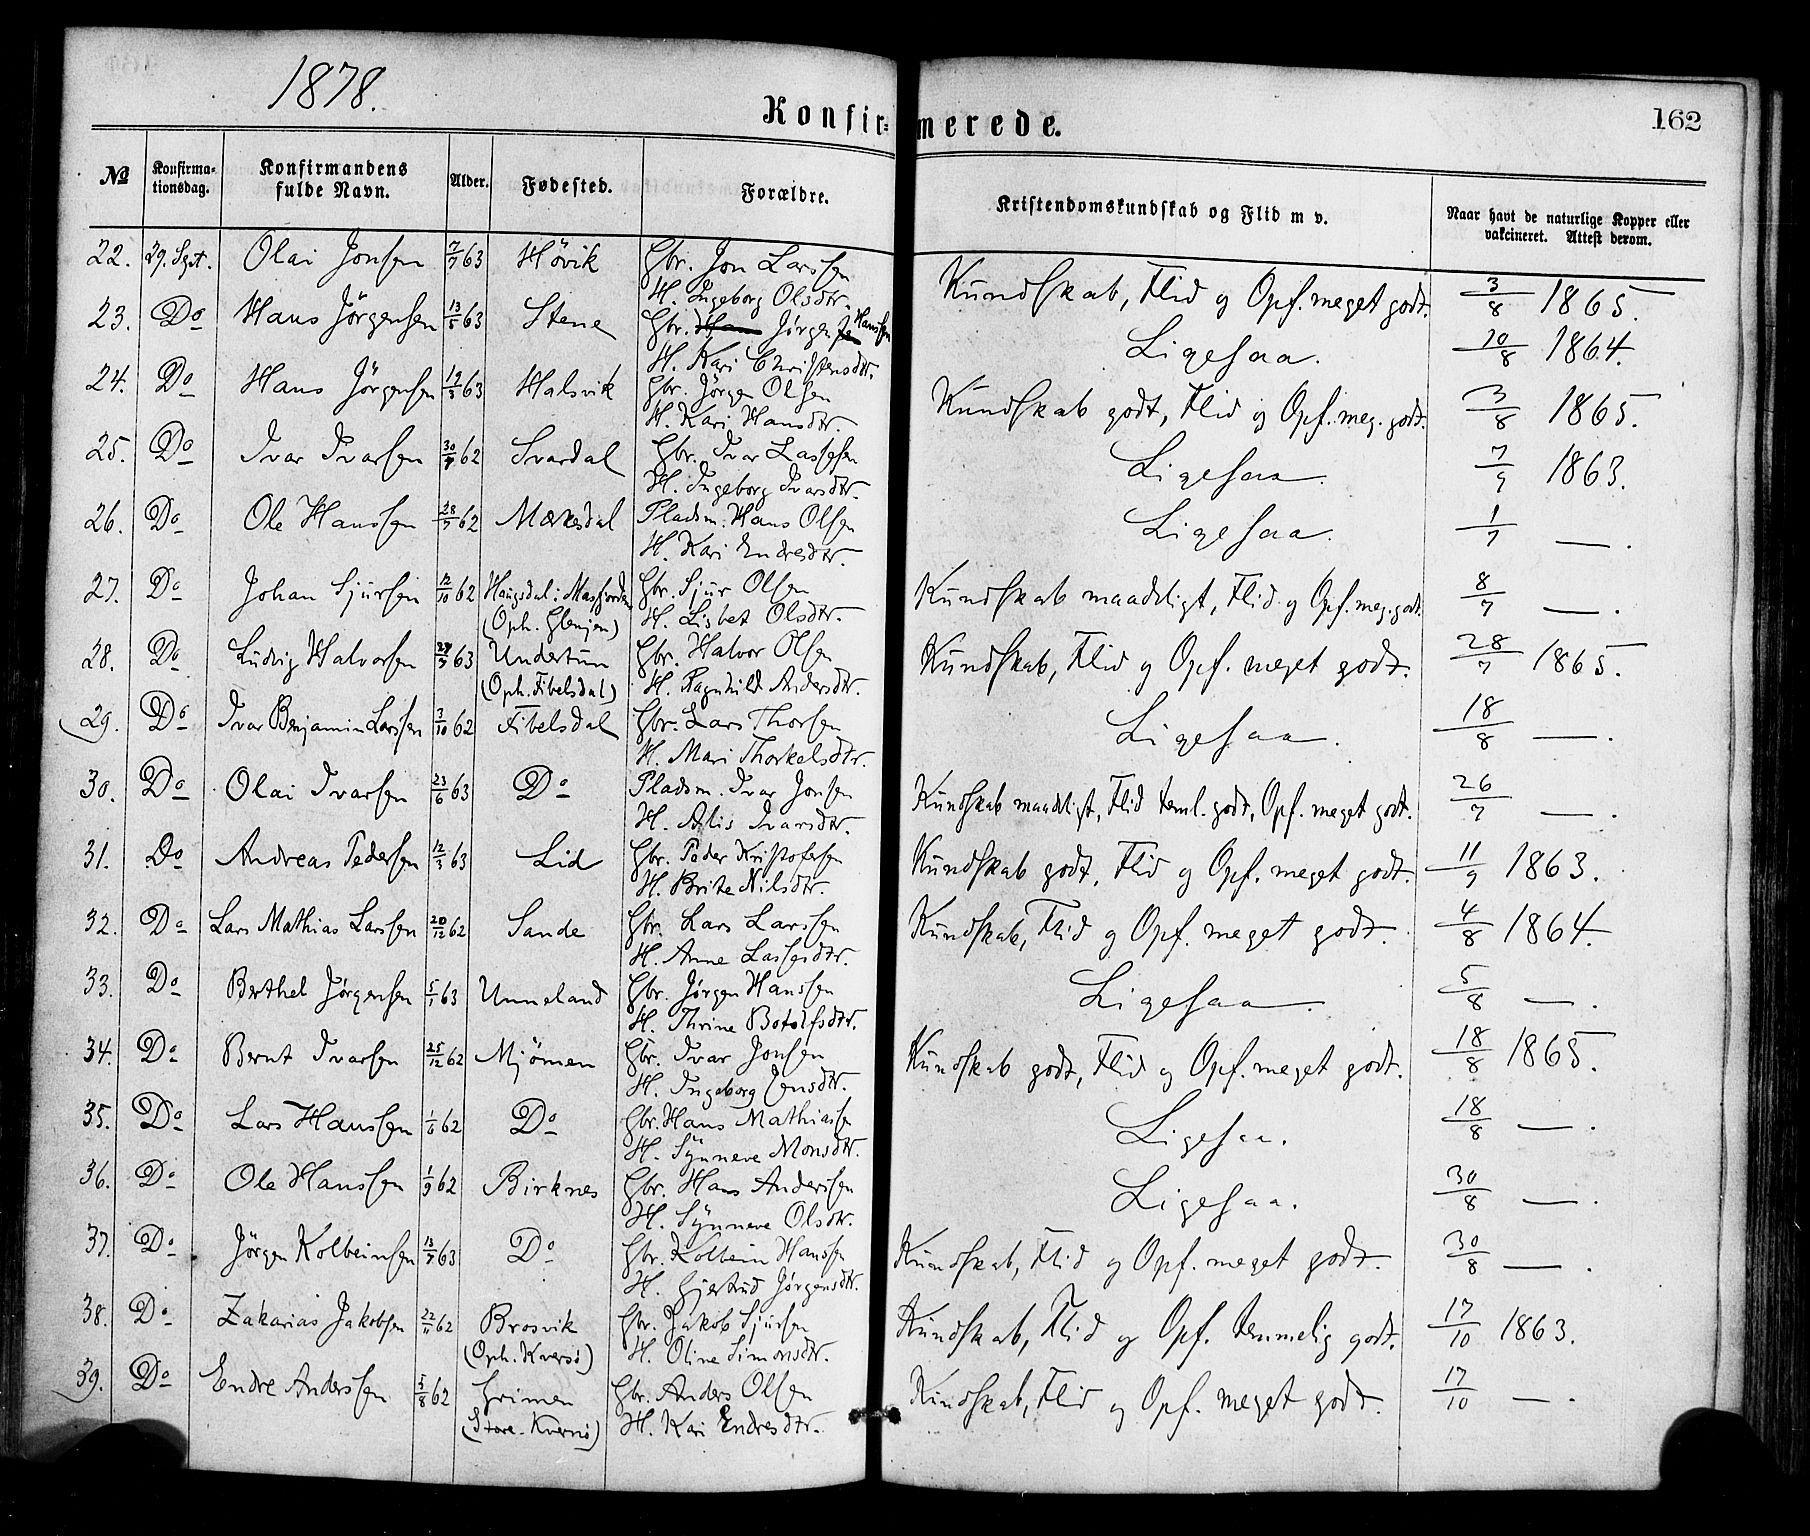 1878.
Konfirmerede.
162
№ Konfirmationsdag. Konfirmandens fulde Navn. Alder. Fødested. Forældre. Kristendomskundskab og Flid m v. Naar havt de naturlige Kopper eller vakcineret. Attest derom.
22. 29. Sept. Olai Jonsen 7/7 63 Hövik Gbr. Jon Larssen
H. Ingeborg Olsdtr. Kundskab, Flid og Opf. meget godt. 3/8 1865.
23. Do Hans Jörgensen 13/5 63 Stene Gbr. Jörgen Hanssen
H. Kari Christensdtr. Ligesaa. 10/8 1864.
24. Do Hans Jörgensen 63 Halsvik Gbr. Jörgen Olsen
H. Kari Hansdtr. Kundskab godt, Flid og Opf. meg. godt. 3/8 1865.
25. Do Ivar Ivarsen 62 Svardal Gbr. Ivar Lassesen
H. Ingeborg Ivarsdtr. Ligesaa. 7/9 1863.
26. Do Ole Hanssen 28/7 62 Mærkesdal Pladsm. Hans Olsen
H. Kari Endresdtr. Ligesaa. 1/7 — .
27. Do Johan Sjursen 12/10 62 Haugsdal i Masfjorden Gbr. Sjur Olsen
(Oph. Glenjen) H. Lisbet Olsdtr. Kundskab maadeligt, Flid og Opf. meg. godt. 8/7 — .
28. Do Ludvig Halvorsen 63 Undertun Gbr. Halvor Olsen
(Oph. Fibelsdal) H. Ragnhild Andersdtr. Kundskab, Flid og Opf. meget godt. 28/7 1865.
29. Do Ivar Benjamin Larssen 3/10 62 Fibelsdal Gbr. Lars Thorsen
H. Mari Thorkelsdtr. Ligesaa. 18/8 — .
30. Do Olai Ivarsen 23/6 63 Do Pladsm. Ivar Jonsen
H. Alis Ivarsdtr. Kundskab maadeligt, Flid teml. godt, Opf. meget godt. 26/7 — .
31. Do Andreas Pedersen 12/3 63 Lid Gbr. Peder Kristofersen
H. Brite Nilsdtr. Kundskab godt, Flid og Opf. meget godt. 11/9 1863.
32. Do Lars Mathias Larssen 20/12 62 Sande Gbr. Lars Larssen
H. Anne Lassesdtr. Kundskab, Flid og Opf. meget godt. 4/8 1864.
33. Do Berthel Jörgensen 5/1 63 Unneland Gbr. Jörgen Hanssen
H. Thrine Botolfsdtr. Ligesaa 5/8 — .
34. Do Bernt Ivarsen 25/12 62 Mjömen Gbr. Ivar Jonsen
H. Ingeborg Jensdtr. Kundskab godt, Flid og Opf. meget godt. 18/8 1865.
35. Do Lars Hanssen 1/6 62 Do Gbr. Hans Mathiassen
H. Synneve Monsdtr. Ligesaa. 18/8 — .
36. Do Ole Hanssen 1/9 62 Birknes Gbr. Hans Anderssen
H. Synneve Olsdtr. Ligesaa. 30/8 — .
37. Do Jörgen Kolbeinsen 13/7 63 Do Gbr. Kolbein Hanssen
H. Gjertrud Jörgensdtr. Kundskab, Flid og Opf. meget godt. 30/8 — .
38. Do Zakarias Jakobsen 22/11 62 Brosvik Gbr. Jakob Sjursen
(Oph. Kversö) H. Oline Simonsdtr. Kundskab, Flid og Opf. temmelig godt. 17/10 1863.
39. Do Endre Anderssen 5/8 62 Grimen Gbr. Anders Olsen
(Store-Kvernö) H. Kari Endresdtr. Kundskab, Flid og Opf. meget godt. 17/10 — .